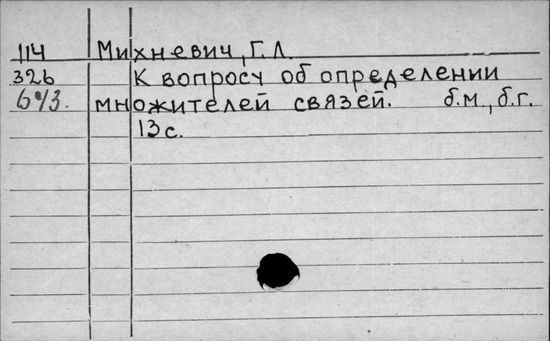 114 Михневич, Г. Л.
326 К вопросу об определении
643. множителей связей. б.м., б.г.
13 с.